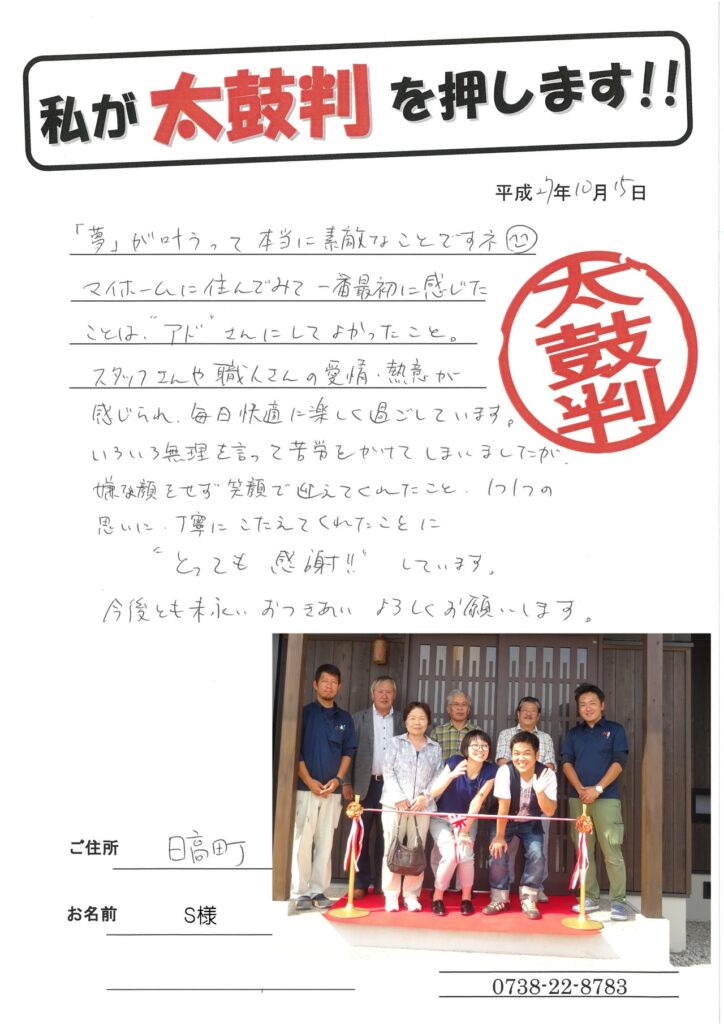 私が太鼓判を押します!!
平成27年10月15日
「夢」が叶うって本当に素敵なことですネ
マイホームに住んでみて一番最初に感じた
ことは、"アド"さんにしてよかったこと。
スタッフさんや職人さんの愛情・熱意が
感じられ、毎日快適に楽しく過ごしています。
いろいろ無理を言って苦労をかけてしまいましたが、
嫌な顔をせず笑顔で迎えてくれたこと、1つ1つの
思いに、丁寧にこたえてくれたことに
"とっても感謝!!"しています。
今後とも末永いおつきあいよろしくお願いします。
太鼓判
ご住所 日高町
お名前 S様
0738-22-8783